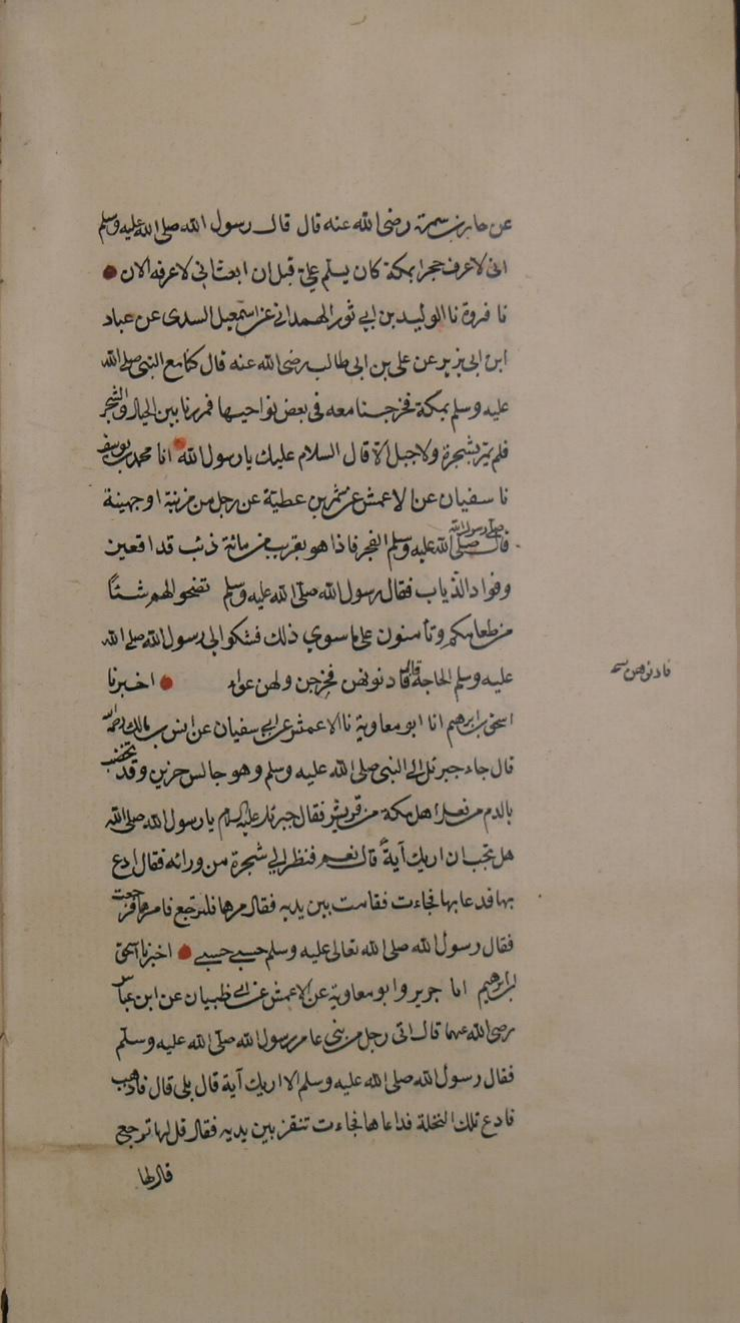 عن جابر بن سمرة رضى الله عنه قال قال رسول الله صلى الله عليه وسلم
انى لاعرف حجرا بمكة كان يسلم على قبل ان ابعث انى لاعرفه الان
نا فروة نا الوليد بن ابى ثور الهمدانى عن اسمعيل السدى عن عباد
ابن ابى يزيد عن على بن ابى طالب رضى الله عنه قال كنا مع النبى صلى الله
عليه وسلم بمكة فخرجنا معه فى بعض نواحيها فمررنا بين الجبال والشجر
فلم يمر بشجرة ولا جبل الا قال السلام عليك يا رسول الله انا محمد بن يوسف
نا سفيان عن الاعمش عن شمر بن عطية عن رجل من مزينة او جهينة
قال صلى رسول الله صلى الله عليه وسلم الفجر فاذا هو بقريب من مائة ذئب قد اقعين
وفود الذياب فقال رسول الله صلى الله عليه وسلم تضحوا لهم شئا
من طعامكم وتأمنون على ما سوى ذلك فشكوا الى رسول الله صلى الله
عليه وسلم الحاجة قال فادنوهن فخرجن ولهن عواء اخبرنا
فادنوهن
اسحق بن ابرهيم انا ابو معاوية نا الاعمش عن ابى سفيان عن انس بن مالك
قال جاء جبرئل الى النبى صلى الله عليه وسلم وهو جالس حزين وقد تخضب
بالدم من فعل اهل مكة من قريش فقال جبرئل عليه السلام يا رسول الله صلى الله
هل تحب ان اريك آية قال نعم فنظر الى شجرة من ورائه فقال ادع
بها فدعا بها فجاءت فقامت بين يديه فقال مرها فلترجع فامرها فرجعت
فقال رسول الله صلى الله تعالى عليه وسلم حسبى حسبى اخبرنا اسحق
ابن ابرهيم انا جرير وابو معاوية عن الاعمش عن ابى ظبيان عن ابن عباس
رضى الله عنهما قال اتى رجل من بنى عامر رسول الله صلى الله عليه وسلم
فقال رسول الله صلى الله عليه وسلم الا اريك آية قال بلى قال فاذهب
فادع تلك النخلة فدعاها فجاءت تنقز بين يديه فقال قل لها ترجع
قال لها